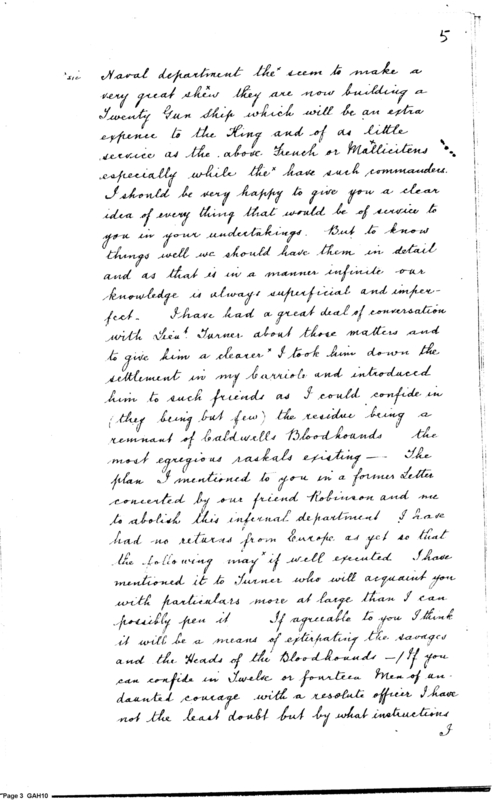 5
"sic Naval department the" seem to make a
very great shew they are now building a
Twenty Gun Ship which will be an extra
expence to the King and of as little
service as the above French or Matlicitens
especially while the" have such commanders.
I should be very happy to give you a clear
idea of every thing that would be of service to
you in your undertakings. But to know
things well we should have them in detail
and as that is in a manner infinite our
knowledge is always superficial and imper-
fect. I have had a great deal of conversation
with Lieut. Turner about those matters and
to give him a clearer" I took him down the
settlement in my Carriole and introduced
him to such friends as I could confide in
(they being but few) the residue being a
remnant of Caldwells Bloodhounds the
most egregious raskals existing — The
plan I mentioned to you in a former Letter
concerted by our friend Robinson and me
to abolish this infernal department I have
had no returns from Europe as yet so that
the following may" if well executed I have
mentioned it to Turner who will acquaint you
with particulars more at large than I can
possibly pen it If agreable to you I think
it will be a means of extirpating the savages
and the Heads of the Bloodhounds —/If you
can confide in Twelve or fourteen Men of un-
daunted courage with a resolute officer I have
not the least doubt but by what instructions
I
Page 3 GAH10